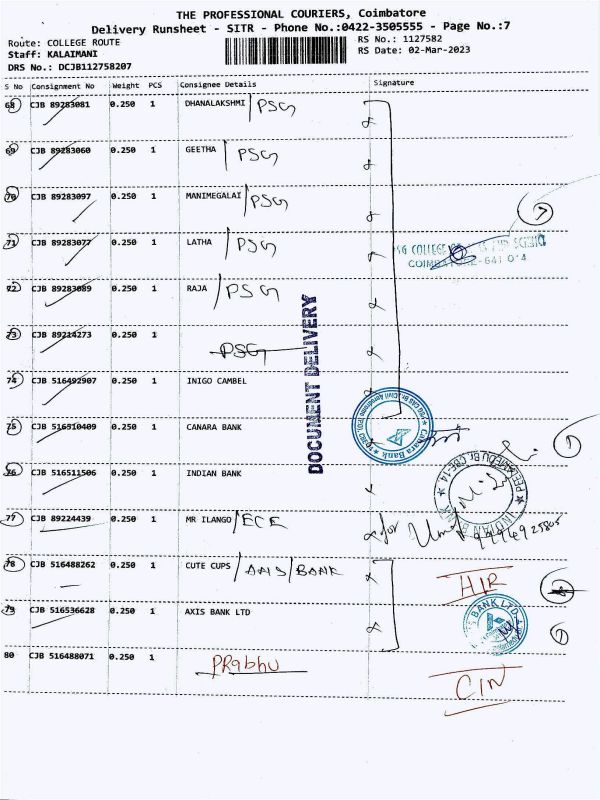 THE PROFESSIONAL COURIERS, Coimbatore
Delivery Runsheet - SITR - Phone No.:0422-3505555 - Page No.:7
Route: COLLEGE ROUTE
RS No.: 1127582
Staff: KALAIMANI
RS Date: 02-Mar-2023
DRS No.: DCJB112758207
S No Consignment No Weight PCS Consignee Details Signature
68 CJB 89283081 0.250 1 DHANALAKSHMI / PSG
69 CJB 89283060 0.250 1 GEETHA / PSG
70 CJB 89283097 0.250 1 MANIMEGALAI / PSG
7
71 CJB 89283077 0.250 1 LATHA / PSG
COIMBATORE-641 014
72 CJB 89283089 0.250 1 RAJA / PSG
73 CJB 89214273 0.250 1
PSG
DOCUMENT DELIVERY
74 CJB 516492907 0.250 1 INIGO CAMBEL
75 CJB 516510409 0.250 1 CANARA BANK
Canara Bank
1
76 CJB 516511506 0.250 1 INDIAN BANK
INDIAN BANK
77 CJB 89224439 0.250 1 MR ILANGO / ECE
for
78 CJB 516488262 0.250 1 CUTE CUPS / AXIS / BANK
HIR
79 CJB 516536628 0.250 1 AXIS BANK LTD
BANK LTD
1
80 CJB 516488071 0.250 1 PRabhu
CIN